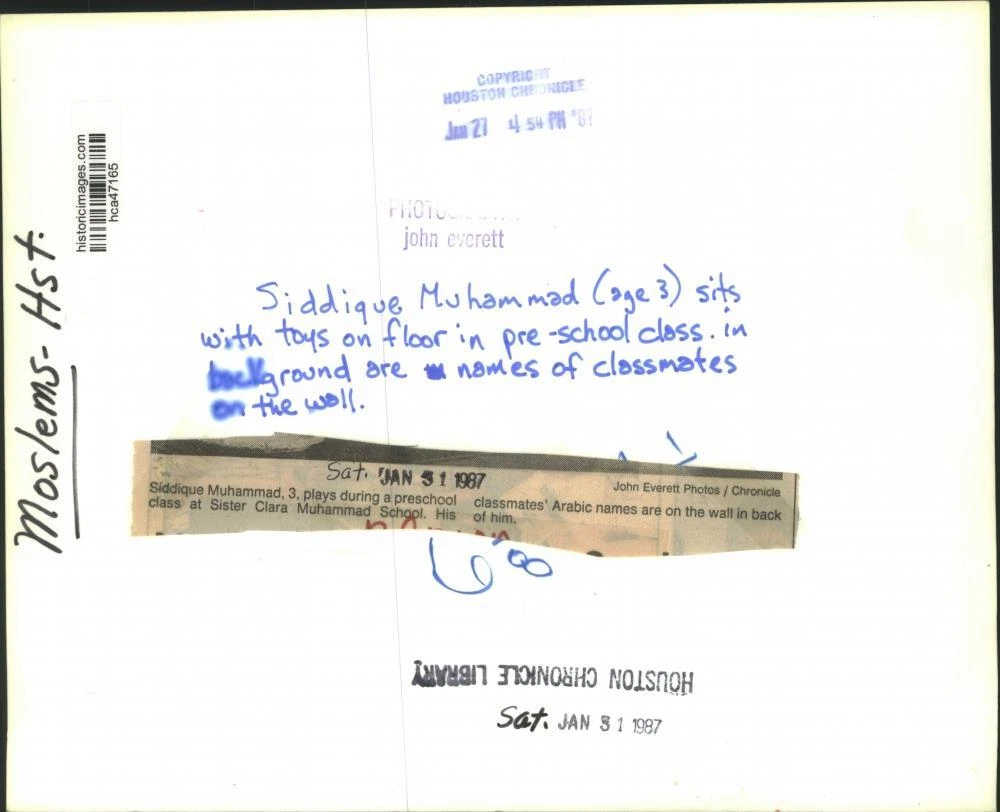 COPYRIGHT
HOUSTON CHRONICLE
Jan 27 4 54 PM '87
historicimages.com
hca47165
Moslems- Hst.
john everett
Siddique Muhammad (age 3) sits
with toys on floor in pre-school class. in
background are names of classmates
on the wall.
Sat. JAN 31 1987
John Everett Photos / Chronicle
Siddique Muhammad, 3, plays during a preschool
class at Sister Clara Muhammad School. His
classmates' Arabic names are on the wall in back
of him.
HOUSTON CHRONICLE LIBRARY
Sat. JAN 31 1987